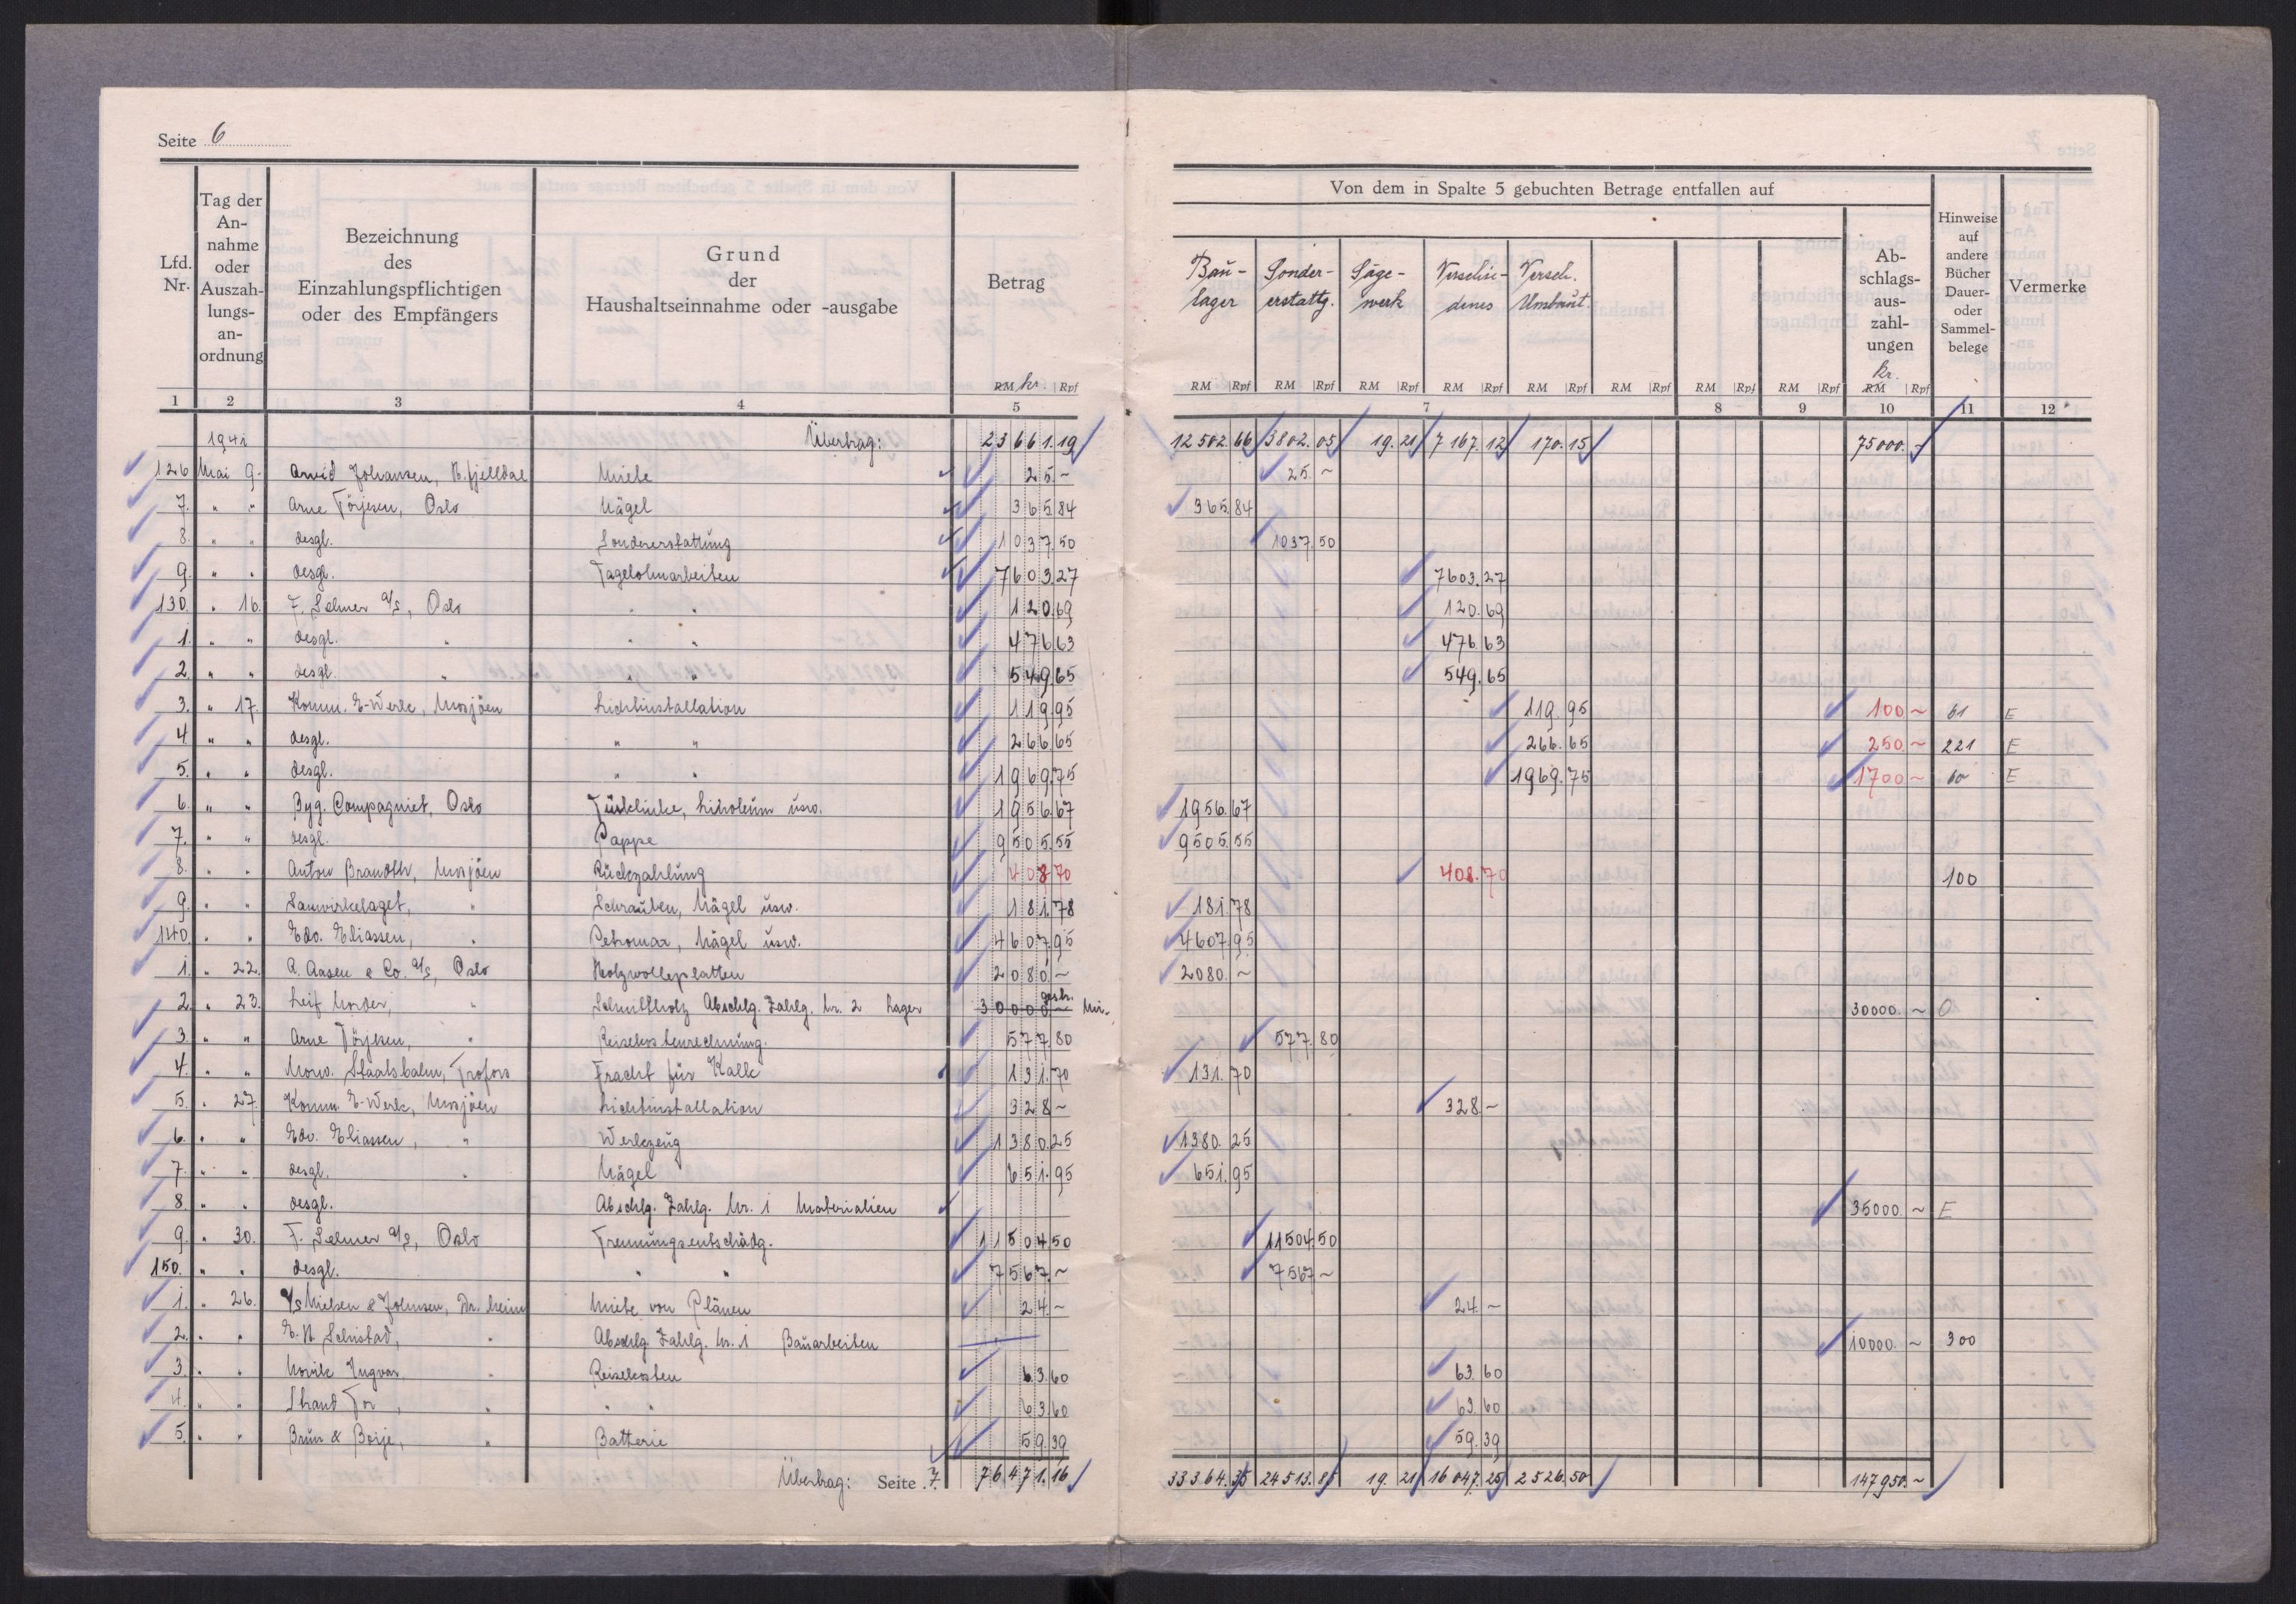 Seite 6
Lfd. Nr.
Tag der An-nahme oder Auszah-lungs-an-ordnung
Bezeichnung des Einzahlungspflichtigen oder des Empfängers
Grund der Haushaltseinnahme oder -ausgabe
Betrag
RM kr. Rpf
Von dem in Spalte 5 gebuchten Betrage entfallen auf
Bau-lager
Sonder-erstattg.
Säge-werk
Verschie-denes
Versch. Umbaut.
Ab-schlags-aus-zahl-ungen kr.
Hinweise auf andere Bücher Dauer- oder Sammel-belege
Vermerke
RM Rpf RM Rpf RM Rpf RM Rpf RM Rpf RM Rpf RM Rpf RM Rpf RM Rpf
1 2 3 4 5 7 8 9 10 11 12
1941 Übertrag: 23661.19 12502.66 3802.05 19.21 7167.12 170.15 75000.-
126 Mai 9. Arvid Johansen, B.fjelldal Miete 25.~ 25.~
7. " " Arne Törjesen, Oslo Nägel 365.84 365.84
8. " " desgl. Sondererstattung 1037.50 1037.50
9. " " desgl. Tagelohnarbeiten 7603.27 7603.27
130. " 16. F. Selmer A/S, Oslo " " 120.69 120.69
1. " " desgl. " " " 476.63 476.63
2. " " desgl. " " " 549.65 549.65
3. " 17. Komm. E-Werk, Mosjöen Lichtinstallation 119.95 119.95 100 ~ 61 E
4. " " desgl. " " 266.65 266.65 250 ~ 221 E
5. " " desgl. " " 1969.75 1969.75 1700 ~ 60 E
6. " " Byg. Compagniet, Oslo Türklinke, Linoleum usw. 1956.67 1956.67
7. " " desgl. Pappe 9505.55 9505.55
8. " " Anton Brandth, Mosjöen Rückzahlung 408.70 408.70 100
9. " " Samvirkelaget, " Schrauben, Nägel usw. 181.78 181.78
140. " " Edv. Eliassen, " Petromax, Nägel usw. 4607.95 4607.95
1. " 22. A. Aasen & Co. A/S, Oslo Holzwolleplatten 2080 ~ 2080. ~
2. " 23. Leif Moder, " Schnittholz Abschlg. Zahlg. Nr. 2 Lager 30000 ~ gestr. 30000. ~ O
3. " " Arne Törjesen, " Reisekostenrechnung. 577.80 577.80
4. " " Norw. Staatsbahn, Trofors Fracht für Kalk 131.70 131.70
5. " 27. Komm. E-Werk, Mosjöen Lichtinstallation 328 ~ 328 ~
6. " " Edv. Eliassen, " Werkzeug 1380.25 1380.25
7. " " desgl. " Nägel 651.95 651.95
8. " " desgl. Abschlg. Zahlg. Nr. 1 Materialien 35000. ~ E
9. " 30. F. Selmer A/S, Oslo Trennungsentschädg. 11504.50 11504.50
150. " " desgl. " " 7567. ~ 7567 ~
1. " 26. A/S Nielsen & Johnsen, Dr. heim Miete von Plänen 24. ~ 24. ~
2. " " " Abschlg. Zahlg. Nr. 1 Bauarbeiten 10000. ~ 300
3. " " Ingvar " Reisekosten 63.60 63.60
4. " " Strand Tor, " " " 63.60 63.60
5. " " Brun & Börje, " Batterie 59.39 59.39
Übertrag: Seite 7. 76471.16 33364.35 24513.85 19.21 16047.25 2526.50 147950.~